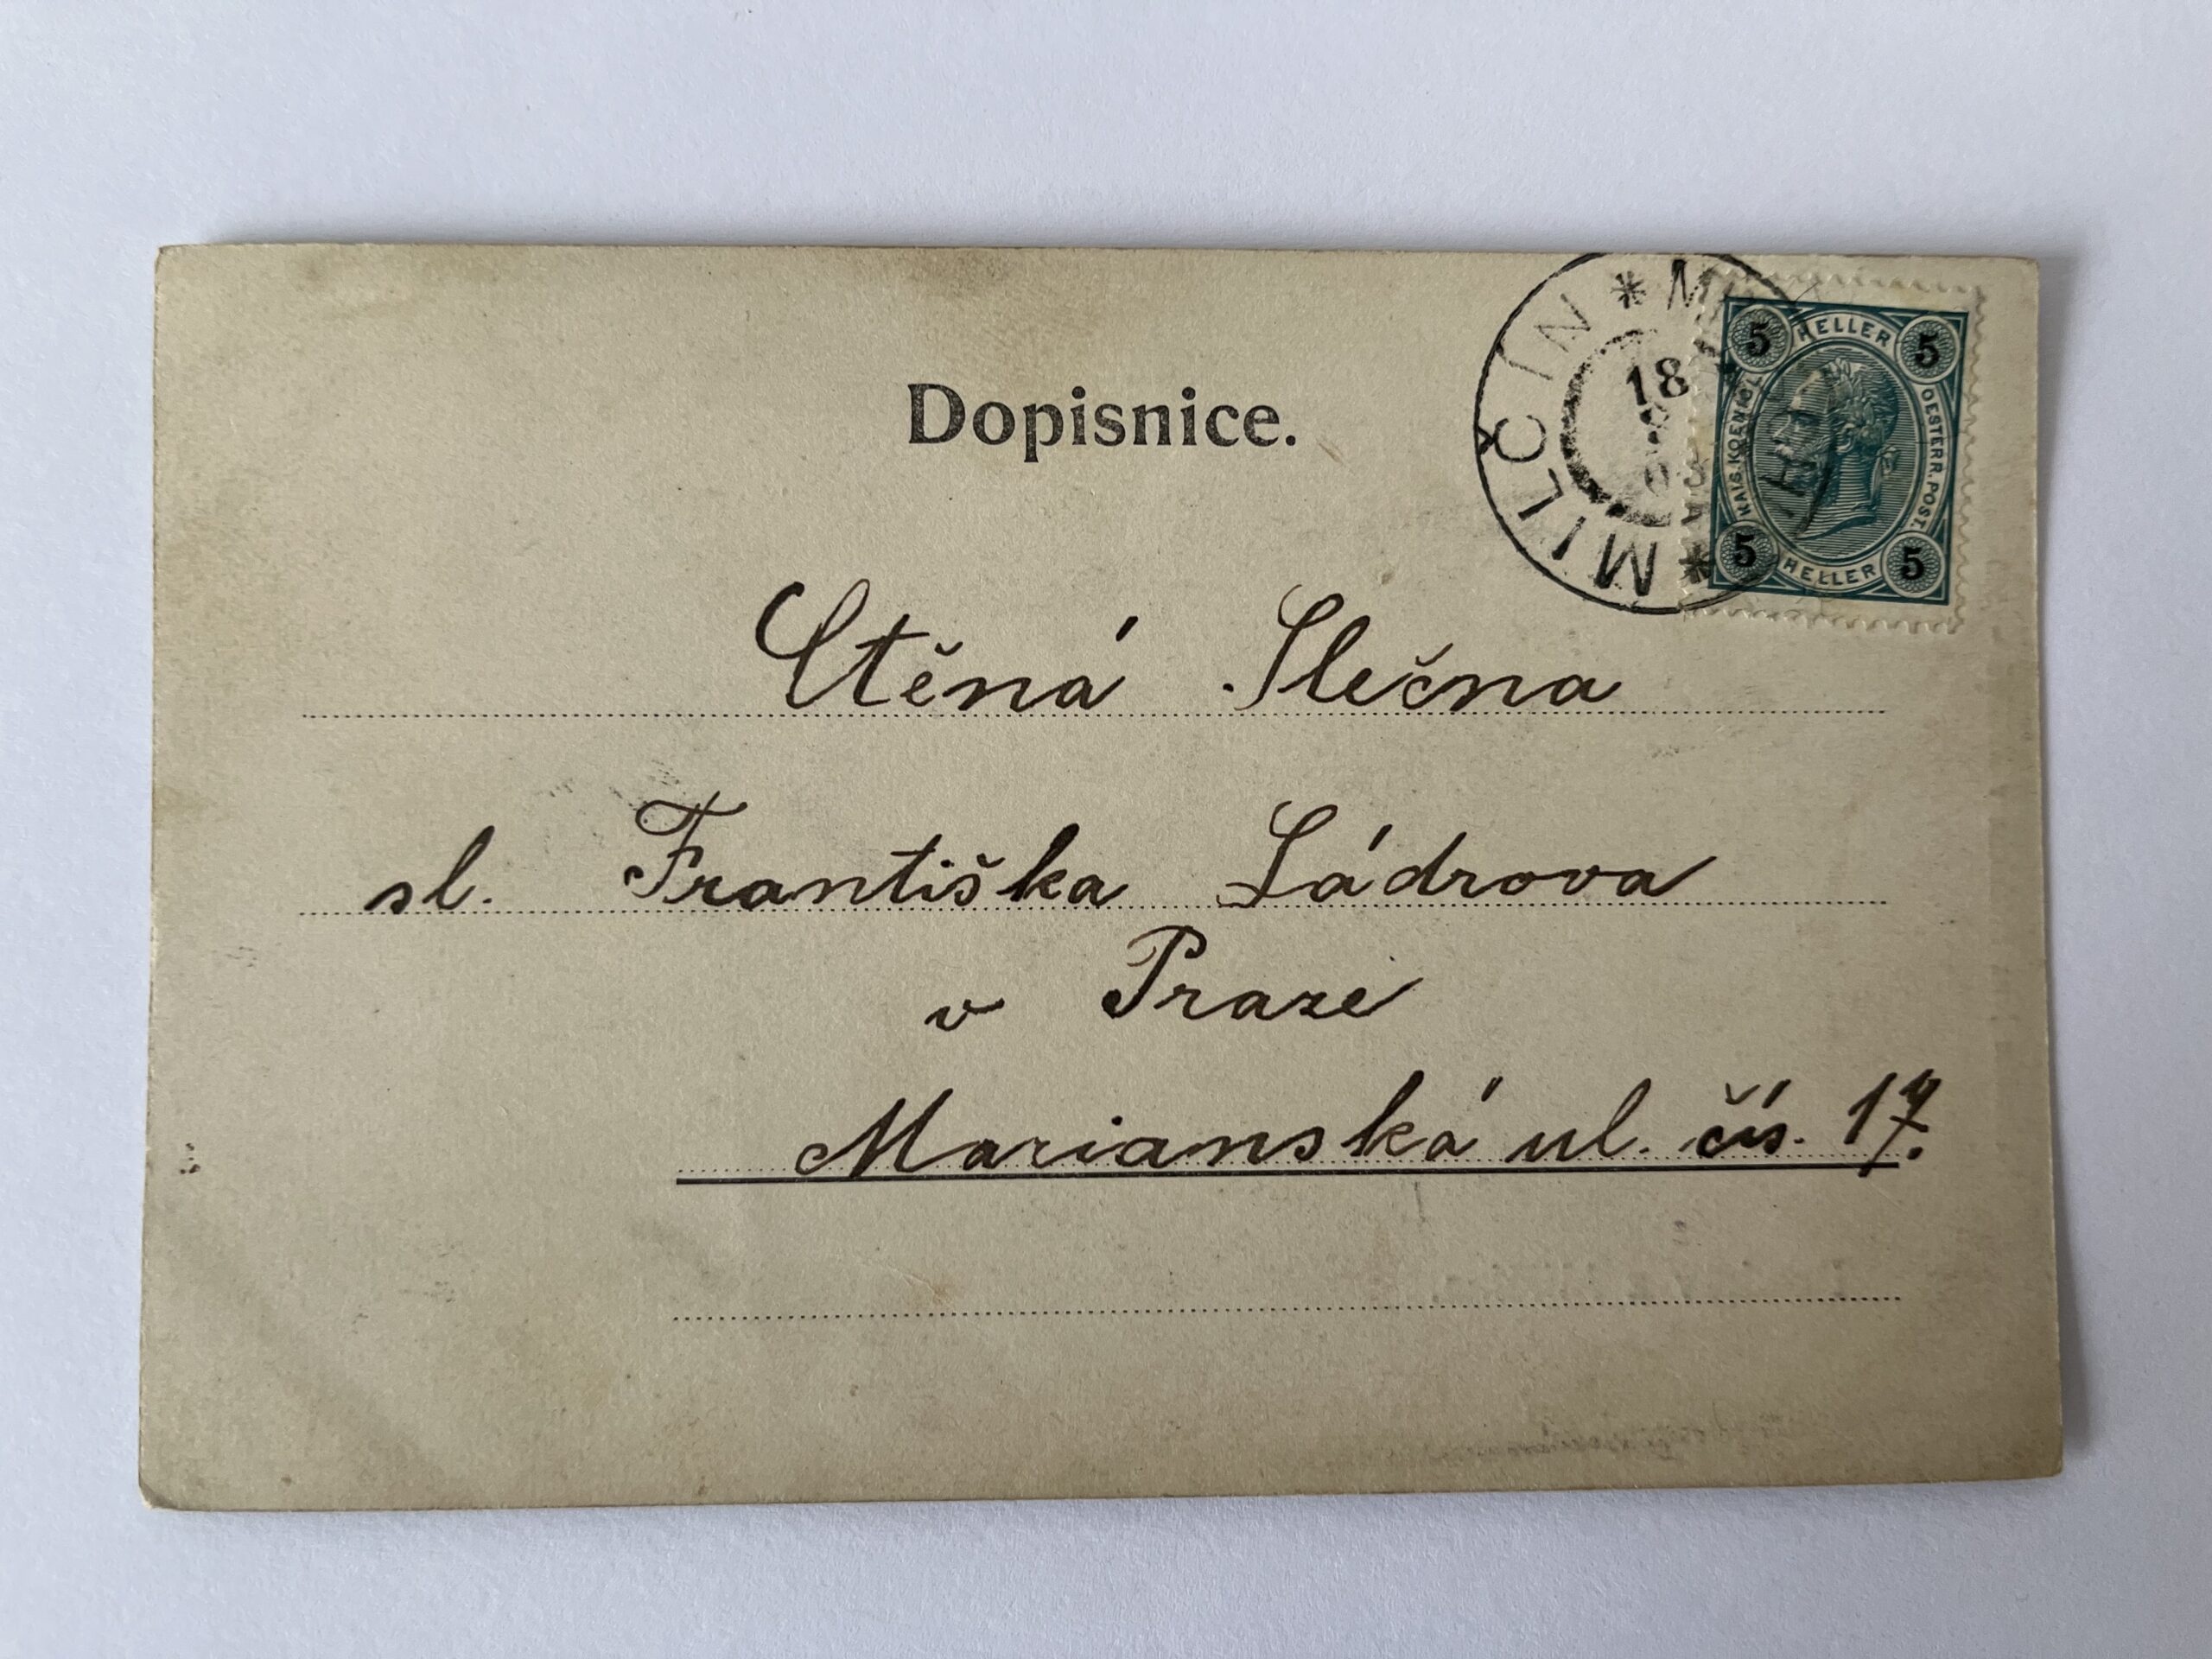 Dopisnice.
MILČÍN * M
18
03
5 HELLER 5
KAIS. KOENIGL. OESTERR. POST.
5 HELLER 5
Ctěná Slečna
sl. Františka Ládrova
v Praze
Marianská ul. čís. 17.